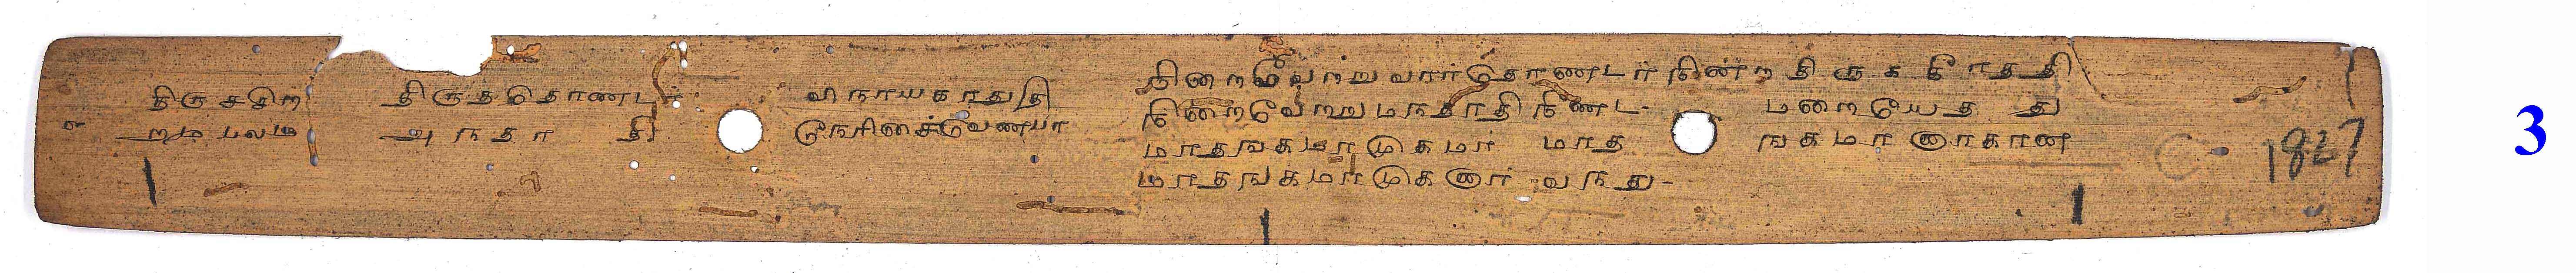 திருசசிற
றமபலம
திருததொண்டர்
அநதாதி
விநாயகர்துதி
நேரிசைவெண்பா
நிறைவேற்றுவார்தொண்டர் நின்றதிருககீர்ததி
நிறைவேற்றுமநதாதி நீண்ட- மறையேதது
மாதஙகமாமுகமா மாத ஙகமானாகாண
மாதஙகமாமுகனார் வநது-
1827
3